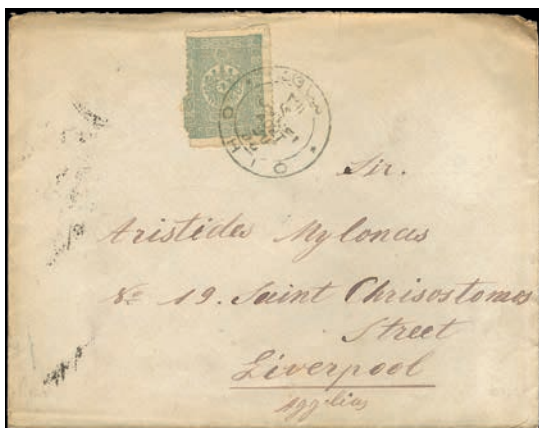 Sir.
Aristides Mylonas
No 19. Saint Chrisostomos
Street
Liverpool
Agglias